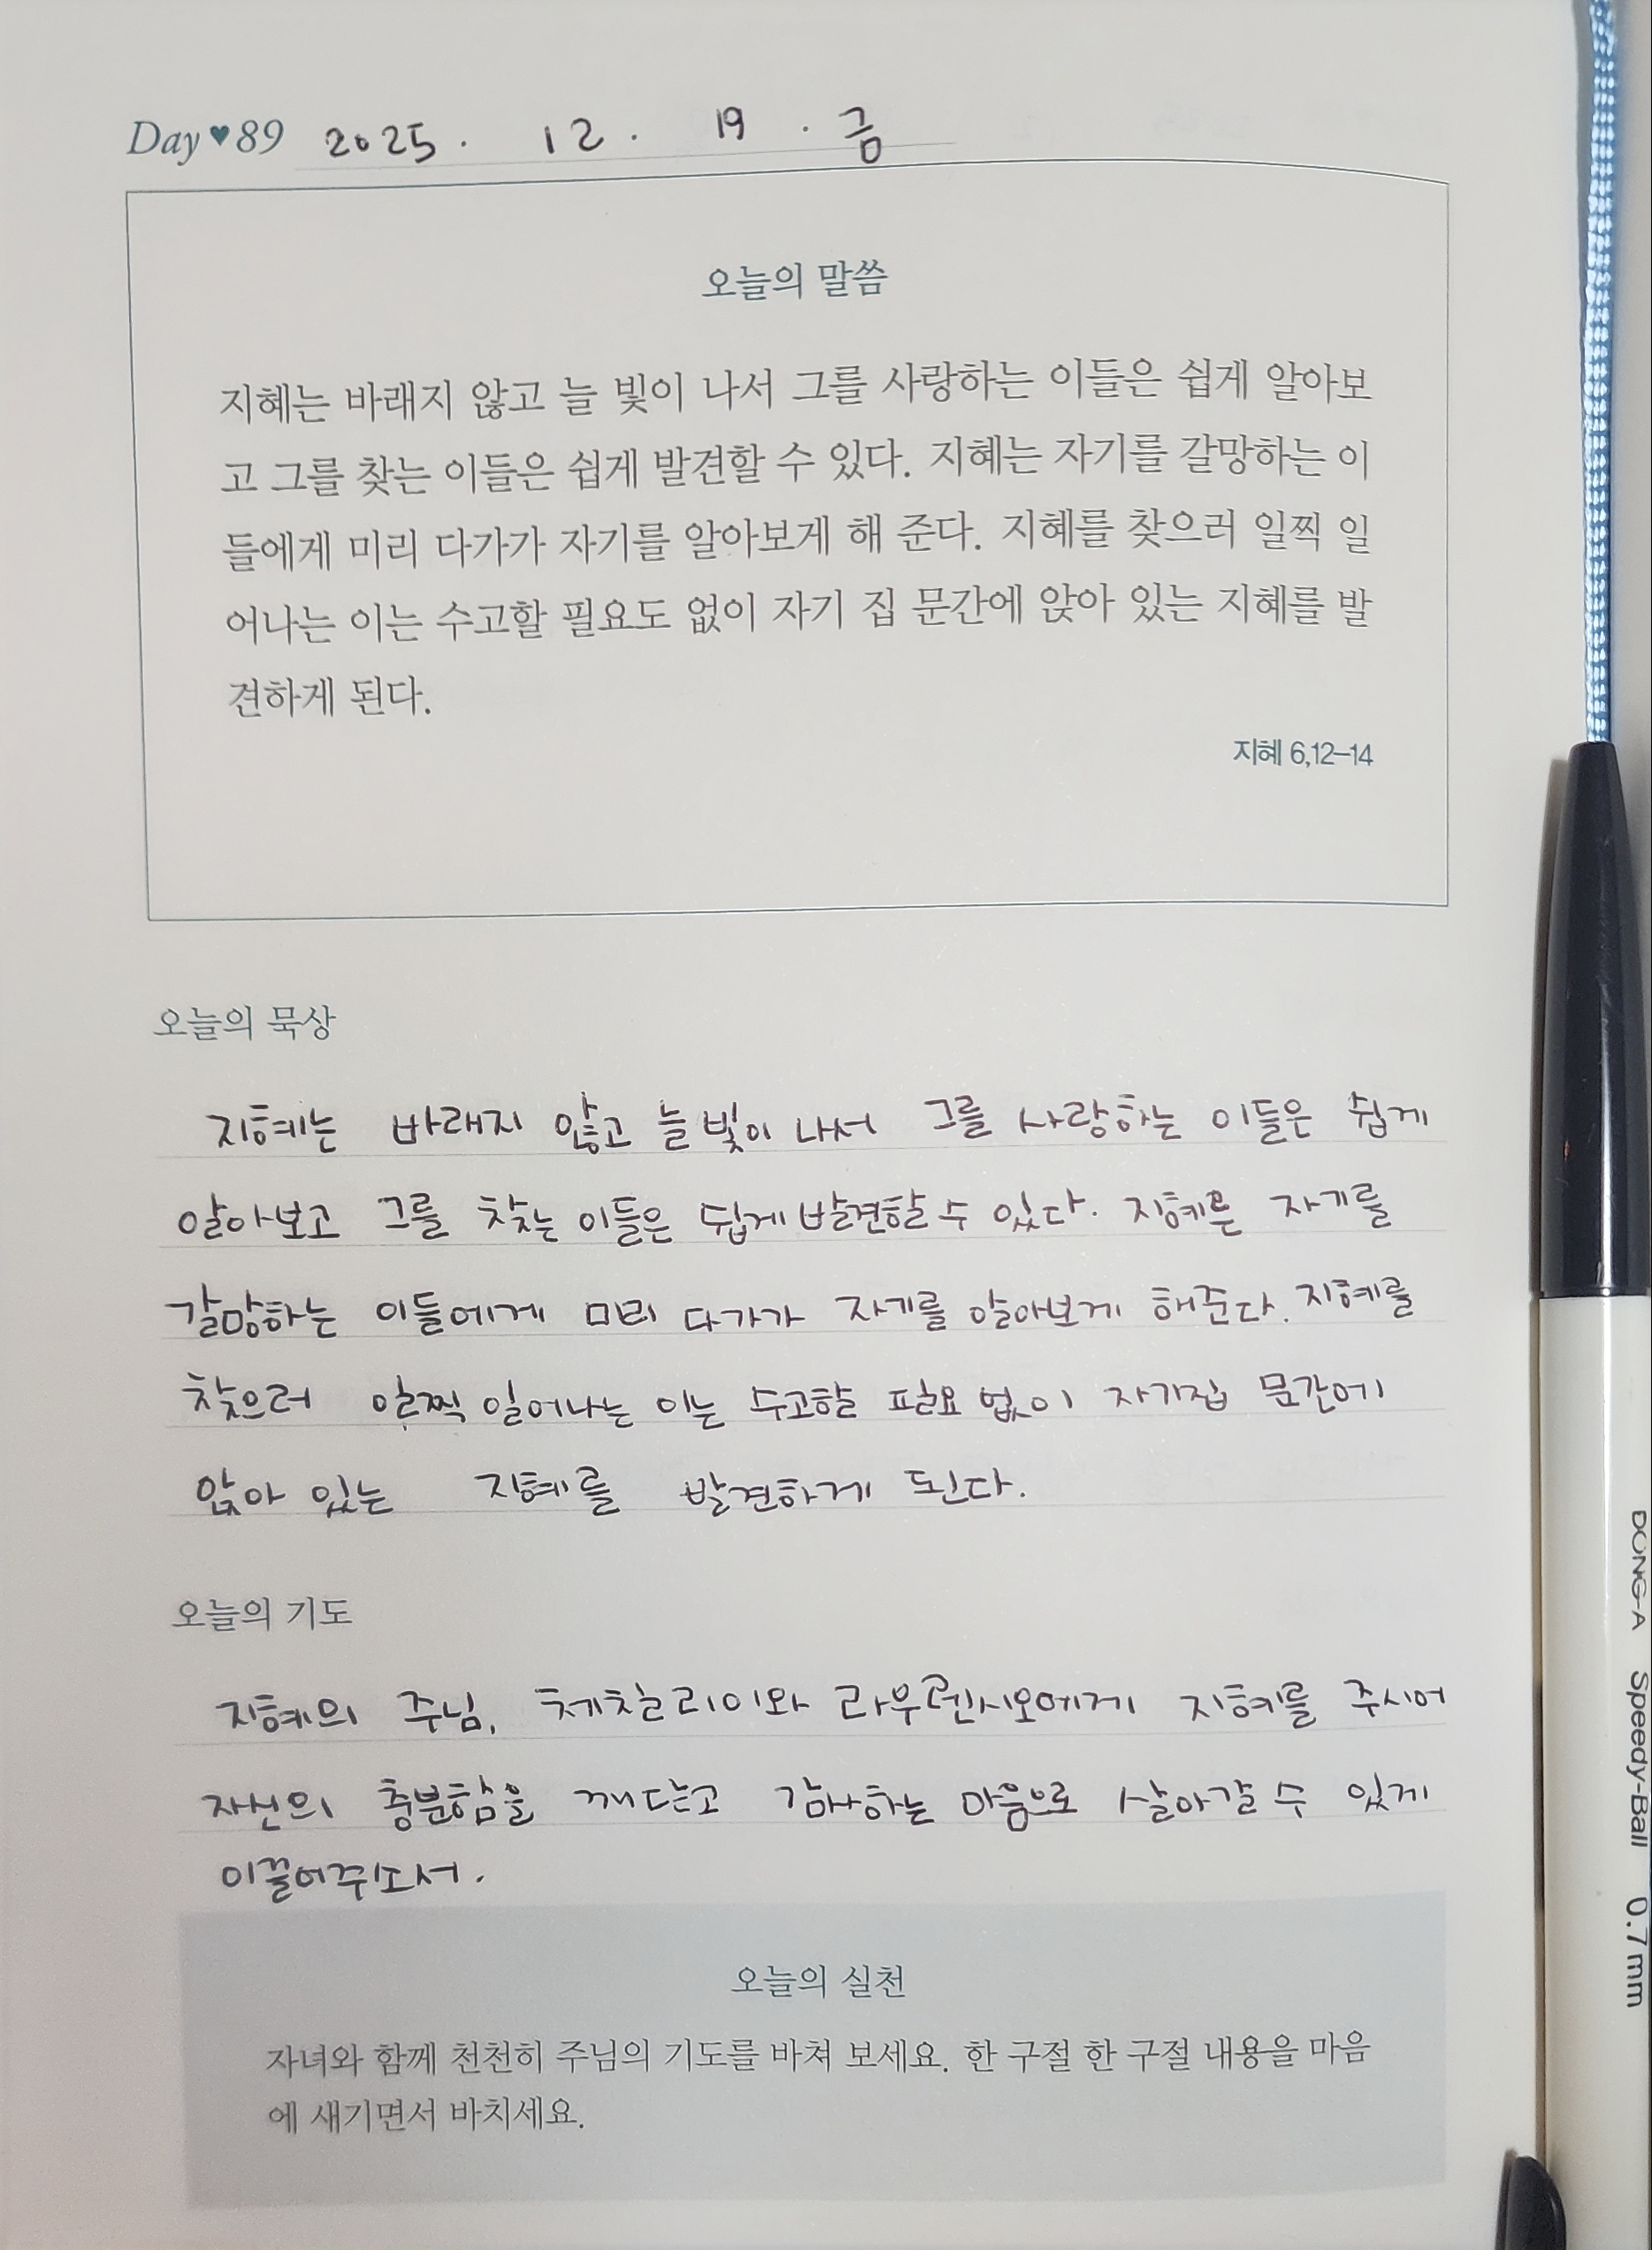 Day♥89 2025. 12. 19. 금
오늘의 말씀
지혜는 바래지 않고 늘 빛이 나서 그를 사랑하는 이들은 쉽게 알아보
고 그를 찾는 이들은 쉽게 발견할 수 있다. 지혜는 자기를 갈망하는 이
들에게 미리 다가가 자기를 알아보게 해 준다. 지혜를 찾으러 일찍 일
어나는 이는 수고할 필요도 없이 자기 집 문간에 앉아 있는 지혜를 발
견하게 된다.
지혜 6,12–14
오늘의 묵상
지혜는 바래지 않고 늘 빛이 나서 그를 사랑하는 이들은 쉽게
알아보고 그를 찾는 이들은 쉽게 발견할 수 있다. 지혜른 자기를
갈망하는 이들에게 미리 다가가 자기를 알아보게 해준다. 지혜를
찾으러 일찍 일어나는 이는 수고할 필요 없이 자기집 문간에
앉아 있는 지혜를 발견하게 된다.
오늘의 기도
지혜의 주님, 체칠리아와 라우렌시오에게 지혜를 주시어
자신의 충분함을 깨닫고 감사하는 마음으로 살아갈 수 있게
이끌어주소서.
오늘의 실천
자녀와 함께 천천히 주님의 기도를 바쳐 보세요. 한 구절 한 구절 내용을 마음
에 새기면서 바치세요.
DONG-A Speedy-Ball 0.7mm